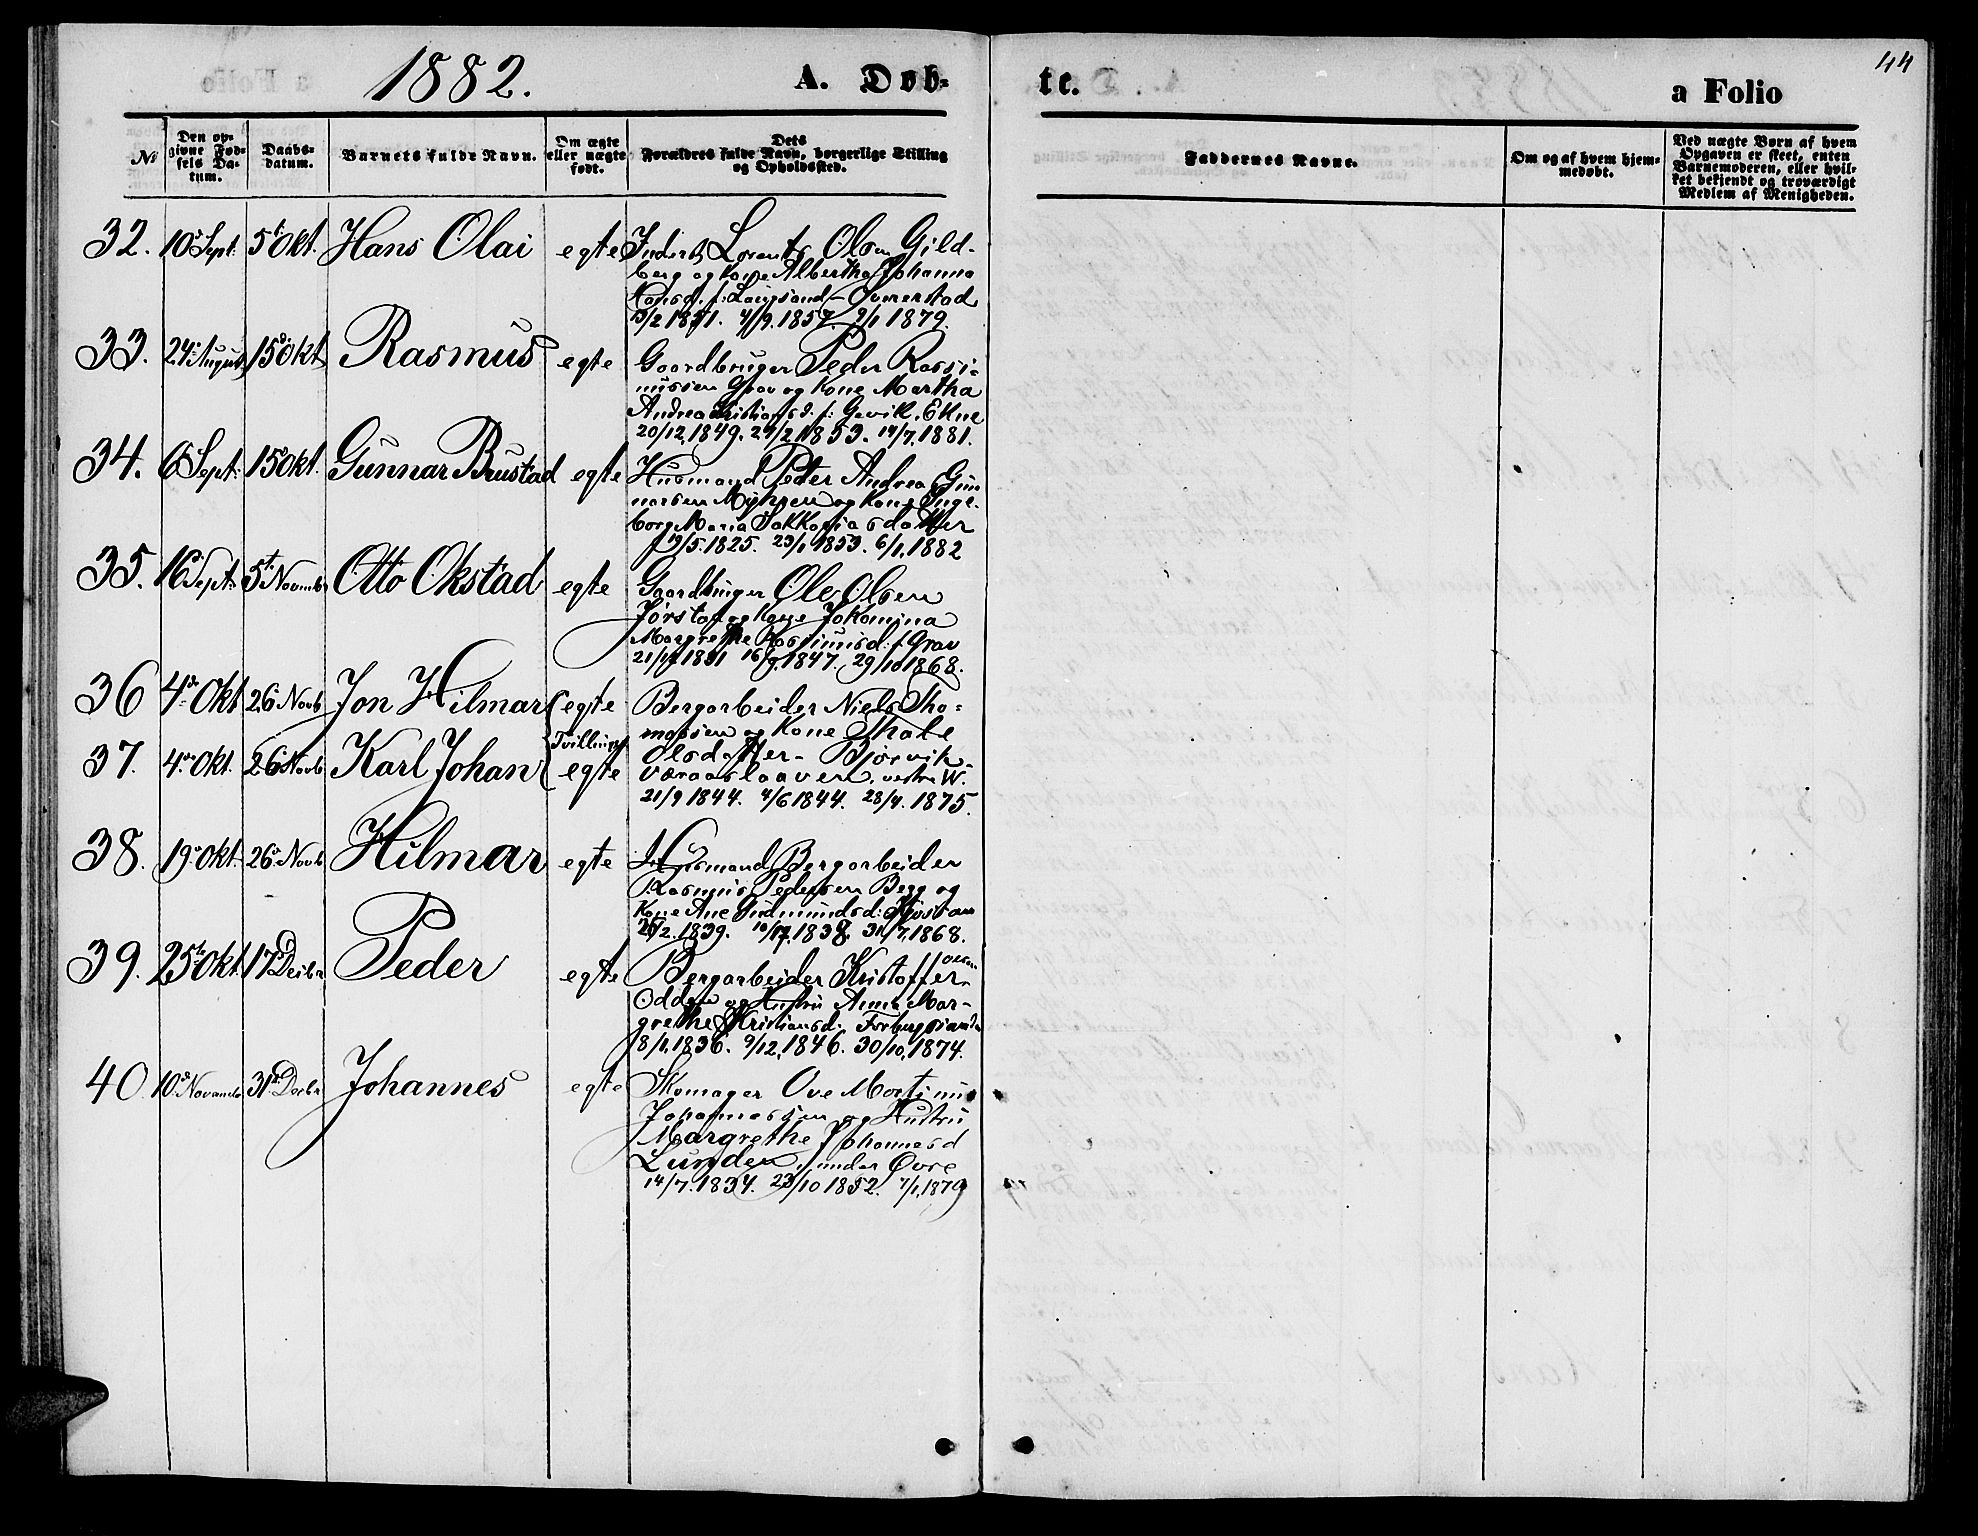 1882. A. Døb-
te. a Folio
44
No
Den op-
givne Fød-
sels Da-
tum.
Daabs-
datum.
Barnets fulde Navn.
Om ægte
eller uægte
født.
Dets
Forældres fulde Navn, borgerlige Stilling
og Opholdssted.
Faddernes Navne.
Om og af hvem hjem-
medøbt.
Ved uægte Børn af hvem
Opgaven er skeet, enten
Barnemoderen, eller hvil-
ket bekjendt og troværdigt
Medlem af Menigheden.
32. 10 Sept. 5 Okt. Hans Olai egte Inderst Lorents Olsen Gild-
berg og Kone Albertha Johanna
1879.
33. 24 August 15 Okt Rasmus egte Gaardbruger Peder Rassi-
mussen Grav og Kone Martha
Andrea Kristiansd. f: Gevik. Ekne
20/12 1849. 1853. 14/7 1881.
34. 6 Sept. 15 Okt. Gunnar Brustad egte Husmand Peter Andrea Gun
narsen Myhren og Kone Inge-
borg Maria Sakkariasdatter
19/5. 1825. 23/1 1853. 6/1. 1882
35. 16 Sept. 5 Novmbr Otto Okstad egte Gaardbruger Ole Olsen
Jørstad og Kone
Margrethe Rassimusd: f. Grav
1847. 29/10 1868.
36 4de Okt 26 Novb Jon Hilmar egte Bergarbeider Niels Tho-
massen og Kone Thale
Tvillinger
37. 4de Okt. 26 Novb Karl Johan egte Olsdatter - Bjørvik-
21/9 1844. 4/6 1844. 28/4. 1875.
38. 19 Okt. 26 Novb Hilmar egte Husmand Bergarbeider
Rasmus Pedersen Berg og
Kone Ane Gudmundsd:
1839. 1838. 31/7. 1868.
39. 25 Okt. 17 Decbr Peder egte Bergarbeider Kristoffer
Odden og Hustru Anne Mar-
grethe Kristiansd:
8/1. 1836. 9/12. 1846. 30/10. 1874.
40. 10 Novembr 31 Decbr Johannes egte Skomager Ove Mortinus
Johannessen og Hustru
Margrethe Johannesd
Lunden, under Øvre
14/7. 1834. 23/10 1852. 7/1. 1879